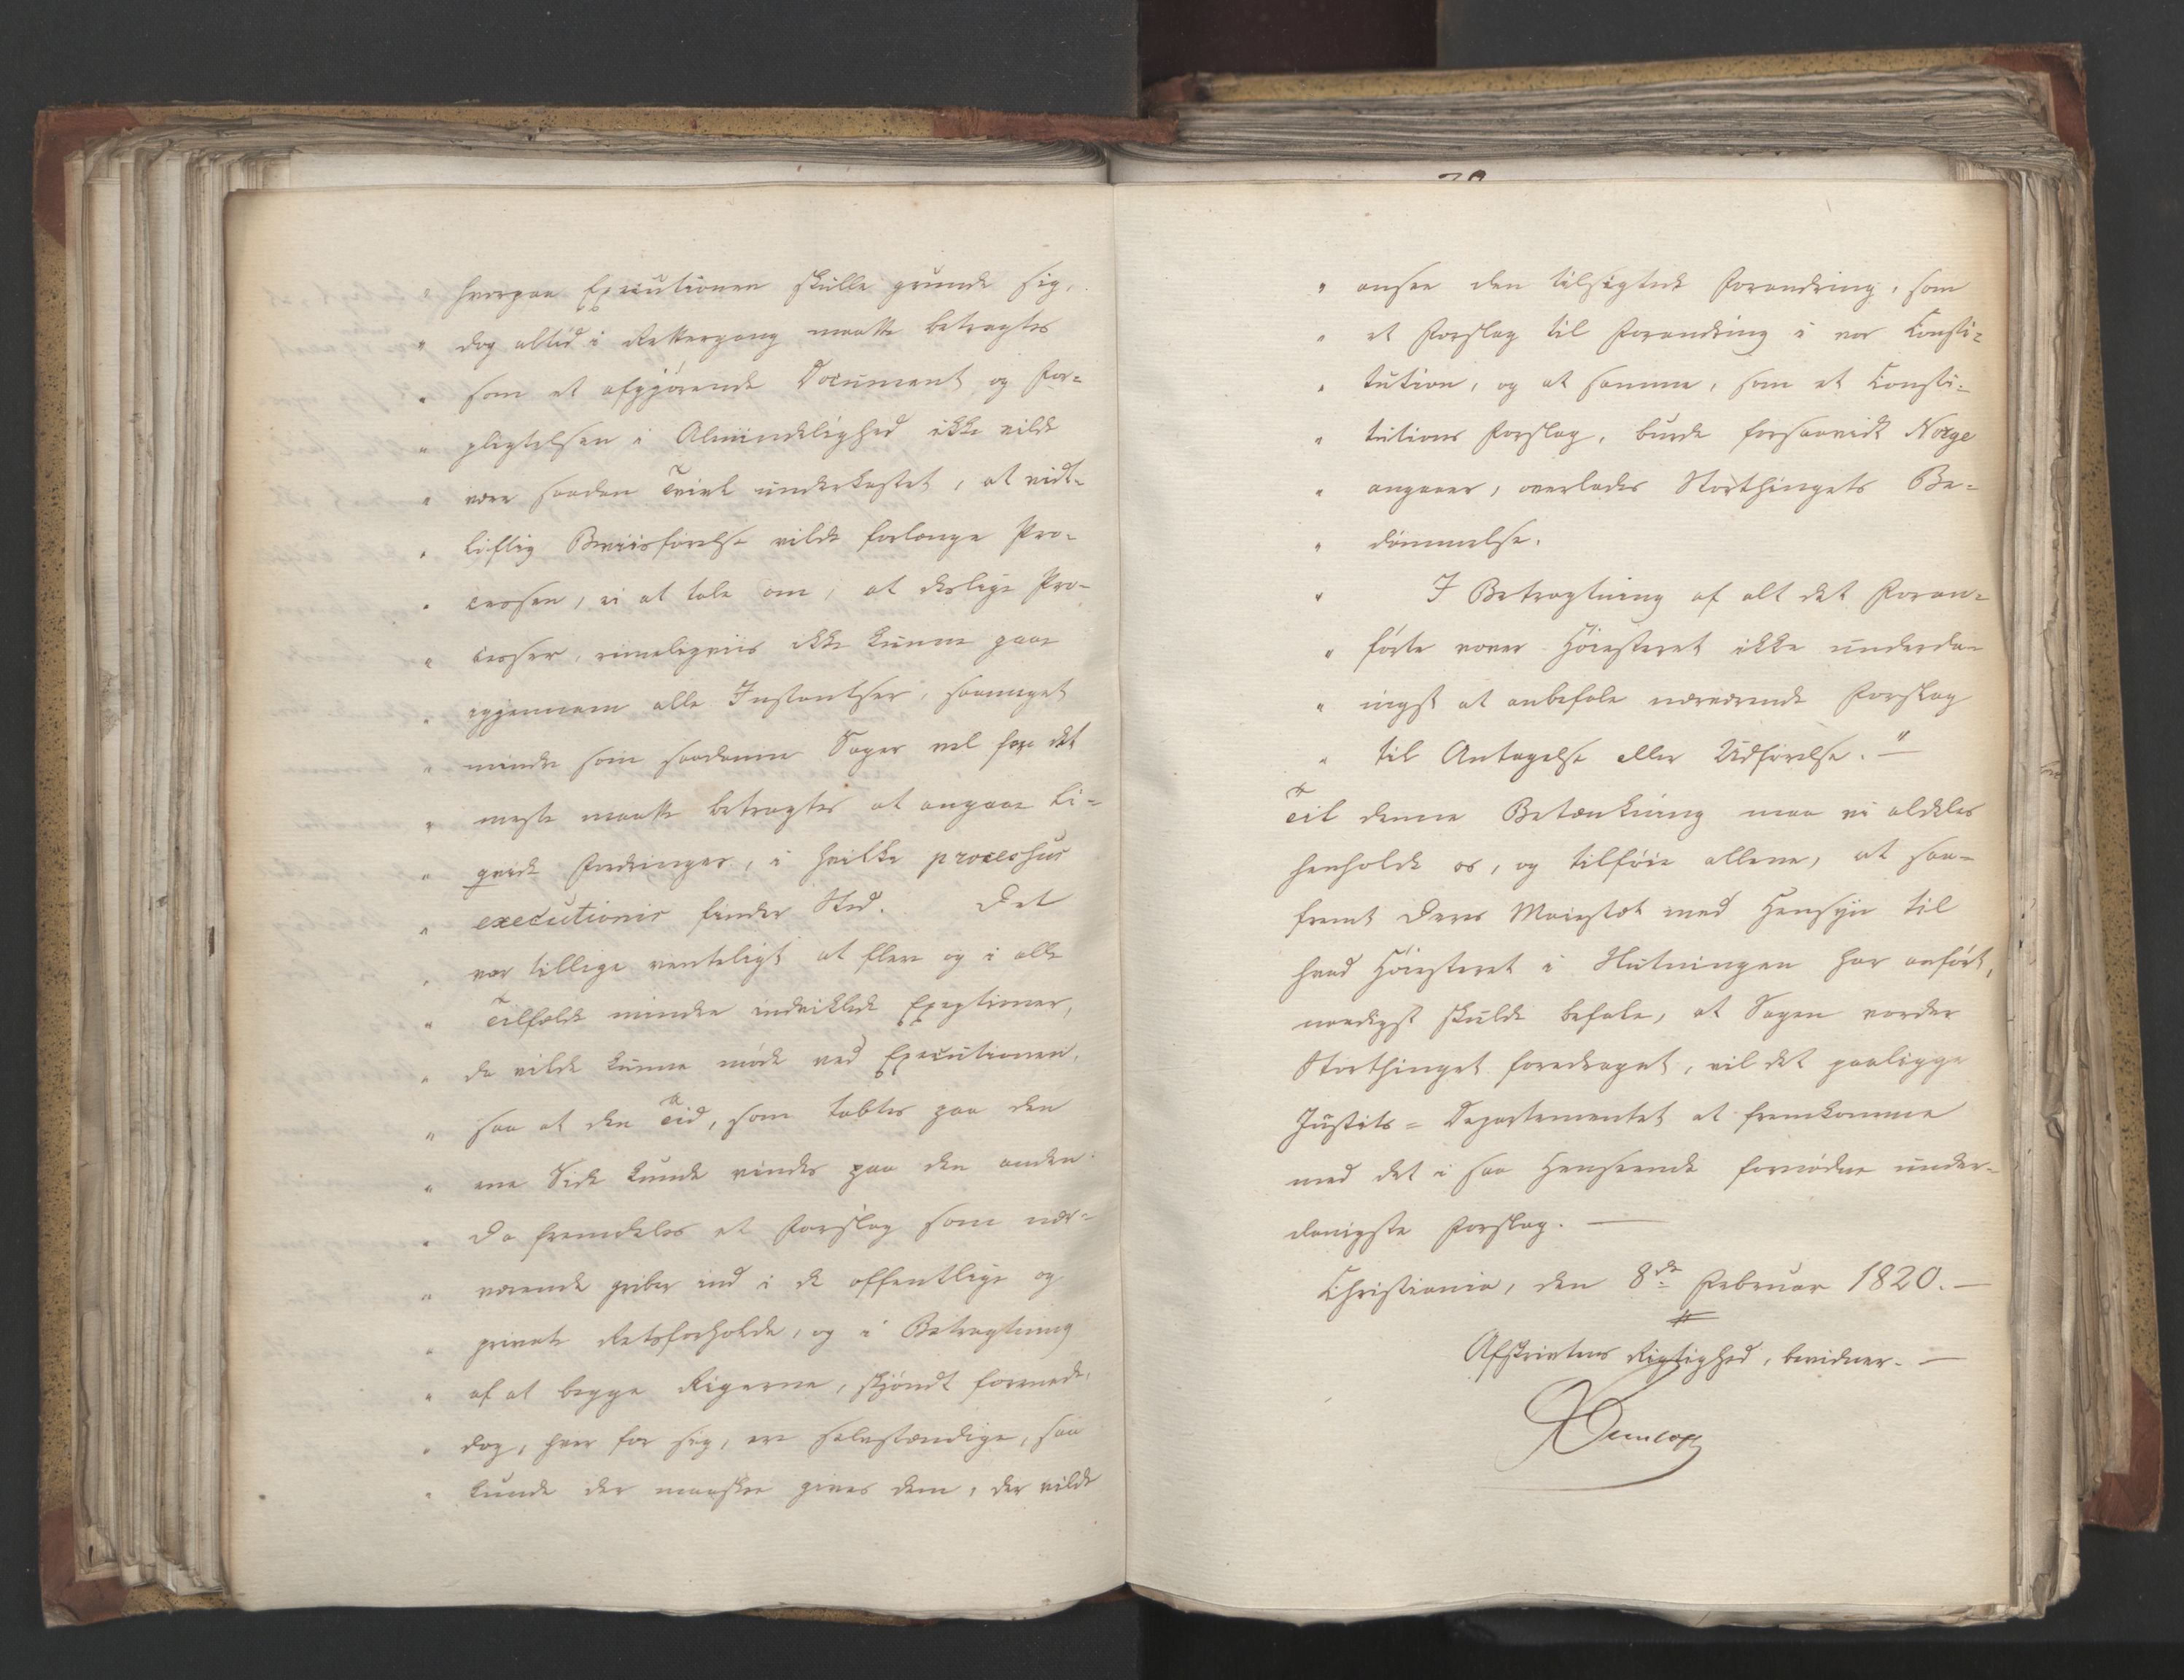 " hvorpaa Executionen skulle grunde sig,
" dog altid i Rettergang maatte betragtes
" som et afgjørende Document og For=
" pligtelsen i Almindelighed ikke vilde
" være saadan Tvivl underkastet, at vidt=
" løftig Beviisførelse vilde forlænge Pro=
" cessen, ei at tale om, at deslige Pro=
" cesser, rimeligviis ikke kunne gaae
" igjennem alle Instantser, saameget
" mindre som saadanne Sager vel for det
" meste maatte betragtes at angaae li=
" qvide Fordringer, i hvilke processus
" executionis finder Sted. Det
" var tillige venteligt at flere og i alle
" Tilfælde mindre indviklede Exeptioner,
" da vilde kunne møde ved Executionen,
" saa at den Tid, som tabtes paa den
" ene Side kunde vindes paa den anden.
" Da fremdeles et Forslag som nær=
" værende griber ind i de offentlige og
" private Retsforholde, og i Betragtning
" af at begge Rigerne, skjøndt forenede,
" dog, hver for sig, ere selvstændige, saa
" kunde der maaskee gives dem, der vilde
" ansee den tilsigtede Forandring, som
" et Forslag til Forandring i vor Consti=
" tution, og at samme, som et Consti=
" tutions Forslag, burde forsaavidt Norge
" angaaer, overlades Storthingets Be=
" dømmelse.
" I Betragtning af alt det Foran=
" førte vover Høiesteret ikke underda=
" nigst at anbefale nærværende Forslag
" til Antagelse eller Udførelse." —
Til denne Betænkning maa vi aldeles
henholde os, og tilføie allene, at saa=
fremt Deres Majestæt med Hensyn til
hvad Høiesteret i Slutningen har anført,
naadigst skulde befale, at Sagen vorder
Storthinget foredraget, vil det paaligge
Justits=Departementet at fremkomme
med det i saa Henseende fornødne under=
danigste Forslag. —
Christiania, den 8de Februar 1820. —
Afskriftens Rigtighed, bevidner. —